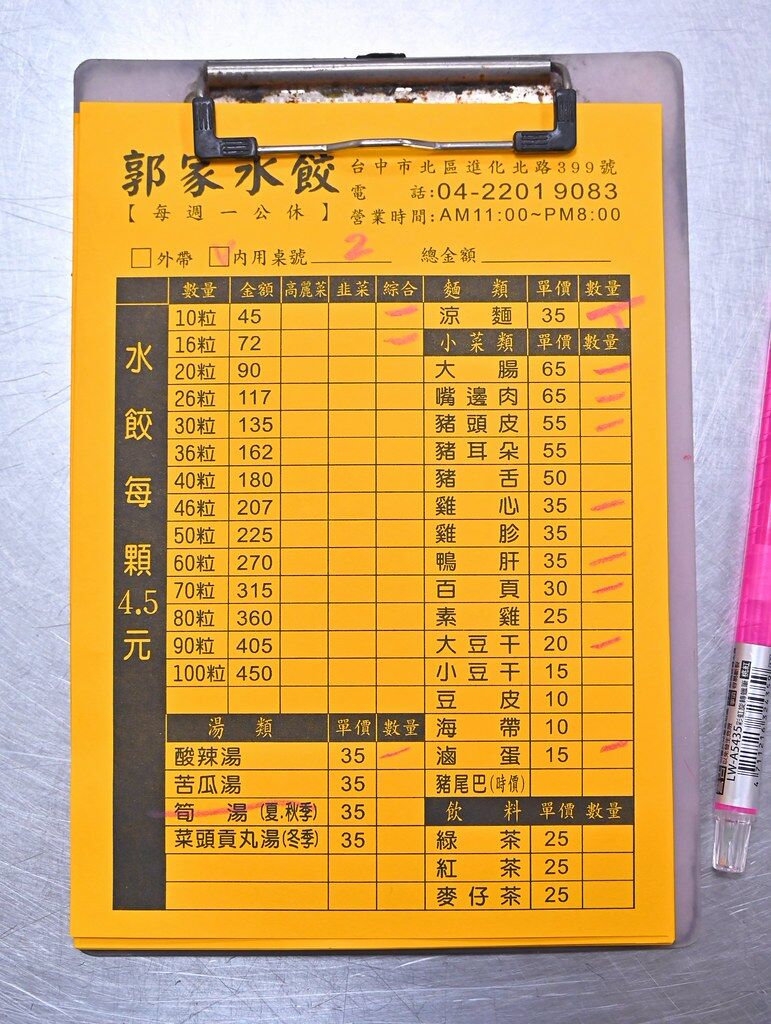 郭家水餃
【每週一公休】
台中市北區進化北路399號
電 話:04-2201 9083
營業時間:AM11:00~PM8:00
外帶 V 內用桌號 2 總金額
水餃每顆4.5元
數量 金額 高麗菜 韭菜 綜合
10粒 45 一
16粒 72 一
20粒 90
26粒 117
30粒 135
36粒 162
40粒 180
46粒 207
50粒 225
60粒 270
70粒 315
80粒 360
90粒 405
100粒 450
湯 類 單價 數量
酸辣湯 35 一
苦瓜湯 35
筍 湯(夏.秋季) 35
菜頭貢丸湯(冬季) 35
麵 類 單價 數量
涼 麵 35 丅
小菜類 單價 數量
大 腸 65 一
嘴邊肉 65 一
豬頭皮 55 一
豬耳朵 55
豬 舌 50
雞 心 35 一
雞 胗 35
鴨 肝 35 一
百 頁 30 一
素 雞 25
大豆干 20 一
小豆干 15
豆 皮 10
海 帶 10
滷 蛋 15 一
豬尾巴(時價)
飲 料 單價 數量
綠 茶 25
紅 茶 25
麥仔茶 25
LW-A5435